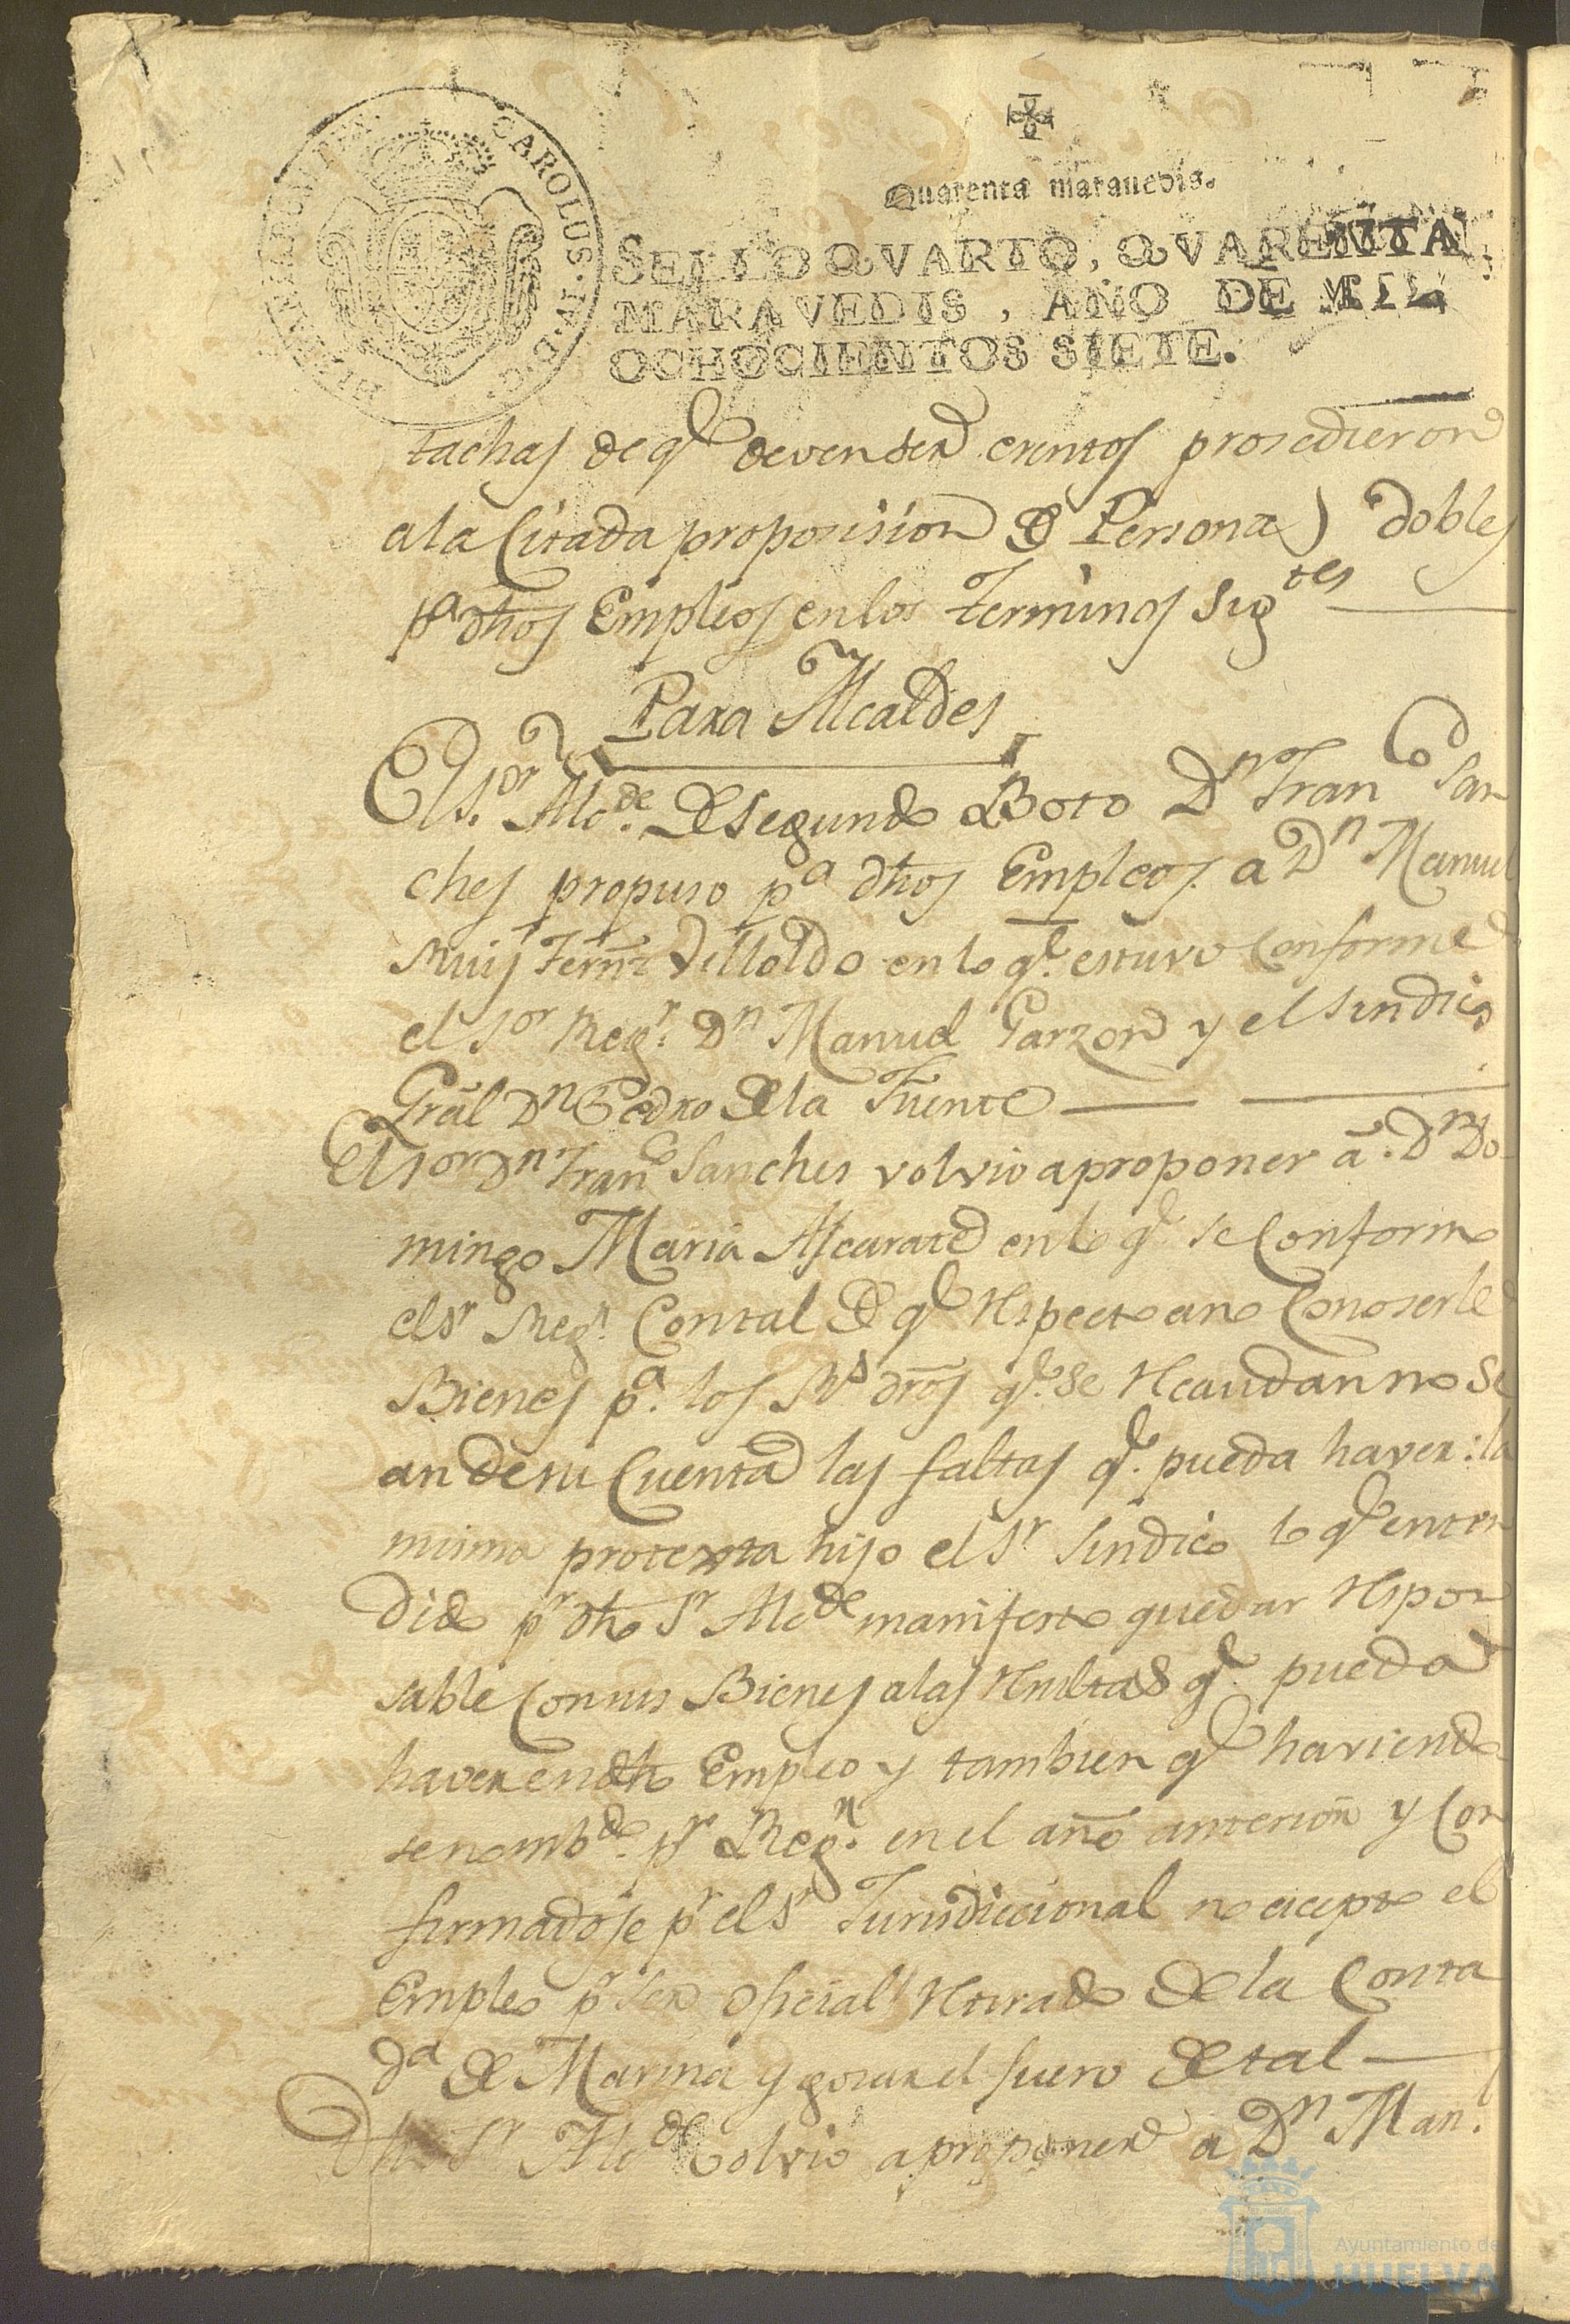 HISPANIARUM REX. CAROLUS. IV. D. G.
Quarenta maravedis.
SELLO QVARTO, QVARENTA
MARAVEDIS, AÑO DE MIL
OCHOCIENTOS SIETE.
tachas de q.e deven ser exentos prosedieron
a la Citada proposision de Personas dobles
p.a dhos Empleos en los terminos sig.tes
Para Alcaldes
El S.or Alc.de de segundo Boto D.n Fran.co San
ches propuso p.a dhos Empleos a D.n Manuel
Ruis Fern.z Villoldo en lo q.e estuvo Conforme
el S.or Reg.r D.n Manuel Garzon y el Sindico
Gral D.n Pedro de la Fuente
El S.or D.n Fran.co Sanches volvio a proponer â D.n Do
mingo Maria Ascarate en lo q.e se Conformo
el S.r Reg.r Con tal de q.e respecto a no Conoserle
Bienes p.a los R.s dros q.e se recaudan no se
an de su Cuenta las faltas q.e pueda haver: la
misma protexta hijo el S.r Sindico lo q.e enten
dido p.r dho S.r Alc.de manifesto quedar respon
sable Con sus Bienes a las resultas q.e pueda
haver en dho Empleo y tambien q.e haviendo
se nomb.do p.r Reg.r en el año anterior y Con
firmadose p.r el S.r Jurisdiccional no acepto el
Empleo p.r ser oficial retirado de la Conta
d.a de Marina y gosar el fuero de tal
Dho S.r Alc.de volvio a proponer a D.n Man.l
Ayuntamiento de
HUELVA